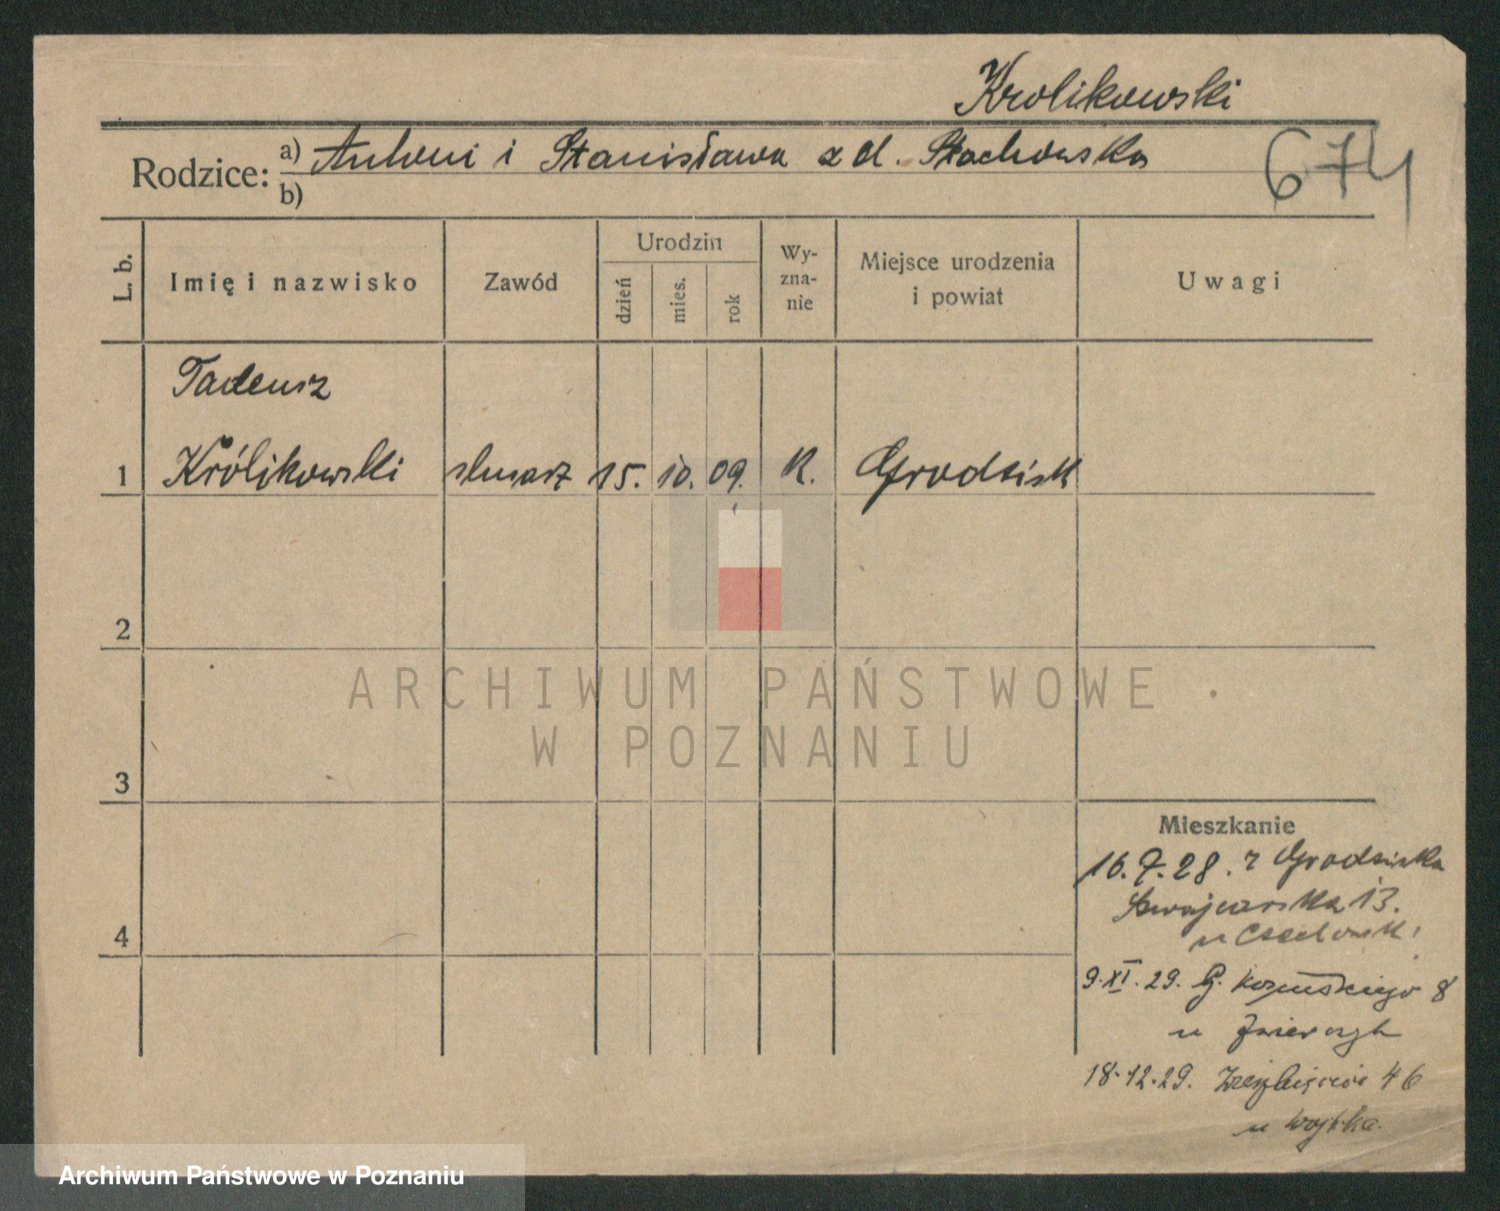 Krolikowski
Rodzice: a) Antoni i Stanisława z d. Stachowska
b)
674
L. b.
Imię i nazwisko
Zawód
Urodzin
dzień
mies.
rok
Wy-
zna-
nie
Miejsce urodzenia
i powiat
Uwagi
Tadeusz
1 Królikowski ślusarz 15. 10. 09. K. Grodzisk
2
3
4
Mieszkanie
16.7.28. z Grodziska
13.
u
9.XI.29. G. 8
u
18.12.29. 46
u Wojtka.
ARCHIWUM PAŃSTWOWE
W POZNANIU
Archiwum Państwowe w Poznaniu